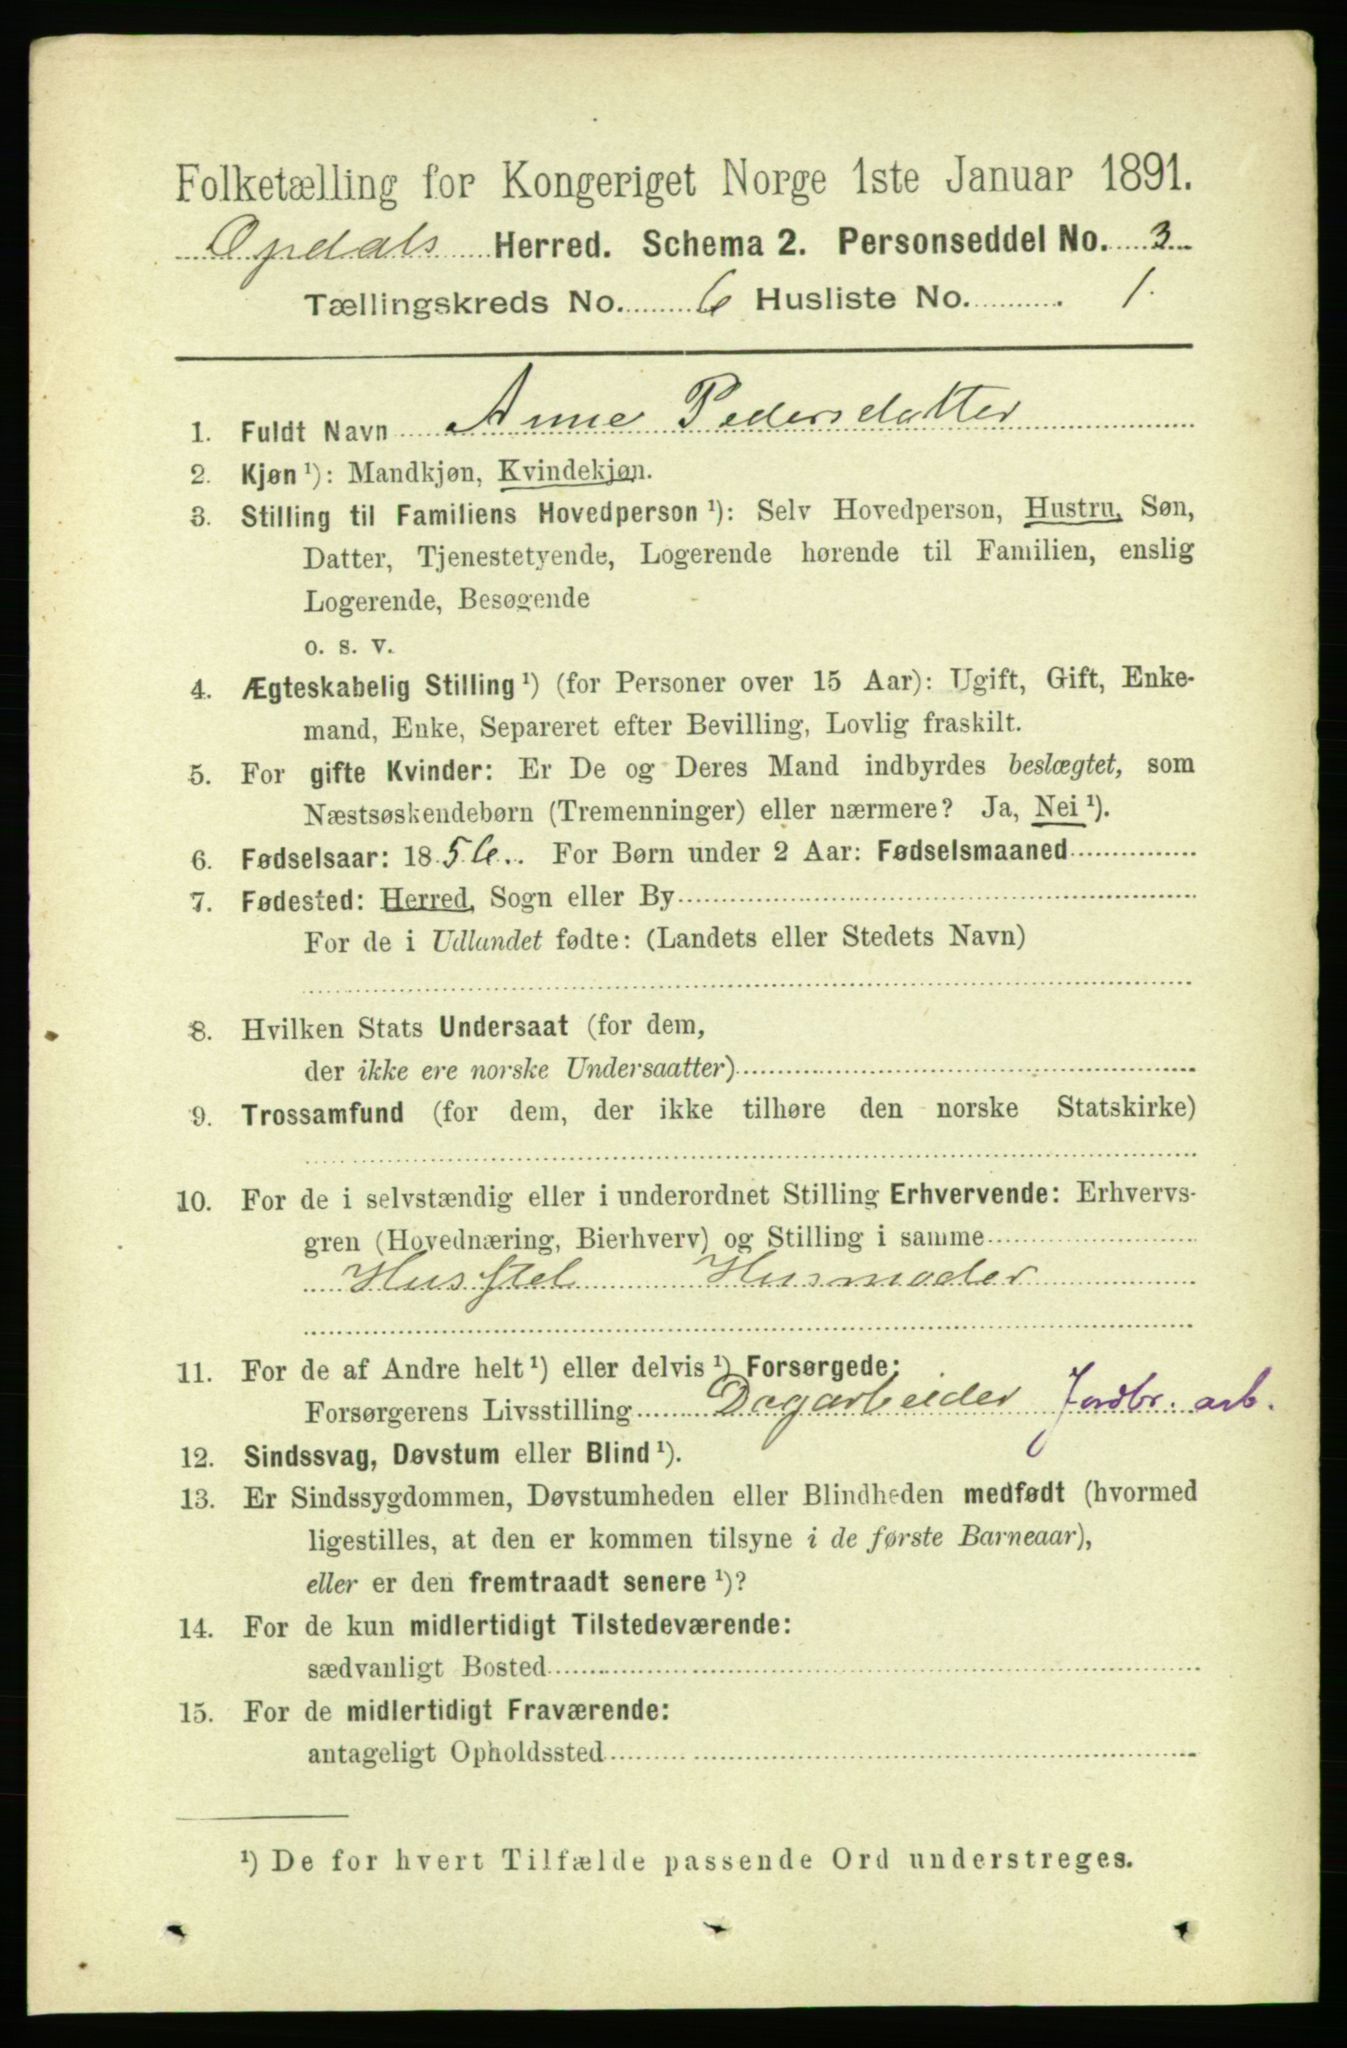 Folketælling for Kongeriget Norge 1ste Januar 1891.
Opdals Herred. Schema 2. Personseddel No. 3
Tællingskreds No. 6 Husliste No. 1.
1. Fuldt Navn Anne Pedersdatter
2. Kjøn ¹): Mandkjøn, Kvindekjøn.
3. Stilling til Familiens Hovedperson ¹): Selv Hovedperson, Hustru, Søn,
Datter, Tjenestetyende, Logerende hørende til Familien, enslig
Logerende, Besøgende
o. s. v.
4. Ægteskabelig Stilling ¹) (for Personer over 15 Aar): Ugift, Gift, Enke-
mand, Enke, Separeret efter Bevilling, Lovlig fraskilt.
5. For gifte Kvinder: Er De og Deres Mand indbyrdes beslægtet, som
Næstsøskendebørn (Tremenninger) eller nærmere? Ja, Nei ¹).
6. Fødselsaar: 1856. For Børn under 2 Aar: Fødselsmaaned
7. Fødested: Herred, Sogn eller By
For de i Udlandet fødte: (Landets eller Stedets Navn)
8. Hvilken Stats Undersaat (for dem,
der ikke ere norske Undersaatter)
9. Trossamfund (for dem, der ikke tilhøre den norske Statskirke)
10. For de i selvstændig eller i underordnet Stilling Erhvervende: Erhvervs-
gren (Hovednæring, Bierhverv) og Stilling i samme
Husstel Husmoder
11. For de af Andre helt ¹) eller delvis ¹) Forsørgede:
Forsørgerens Livsstilling Dagarbeider Jordbr. arb.
12. Sindssvag, Døvstum eller Blind ¹).
13. Er Sindssygdommen, Døvstumheden eller Blindheden medfødt (hvormed
ligestilles, at den er kommen tilsyne i de første Barneaar),
eller er den fremtraadt senere ¹)?
14. For de kun midlertidigt Tilstedeværende:
sædvanligt Bosted
15. For de midlertidigt Fraværende:
antageligt Opholdssted
¹) De for hvert Tilfælde passende Ord understreges.